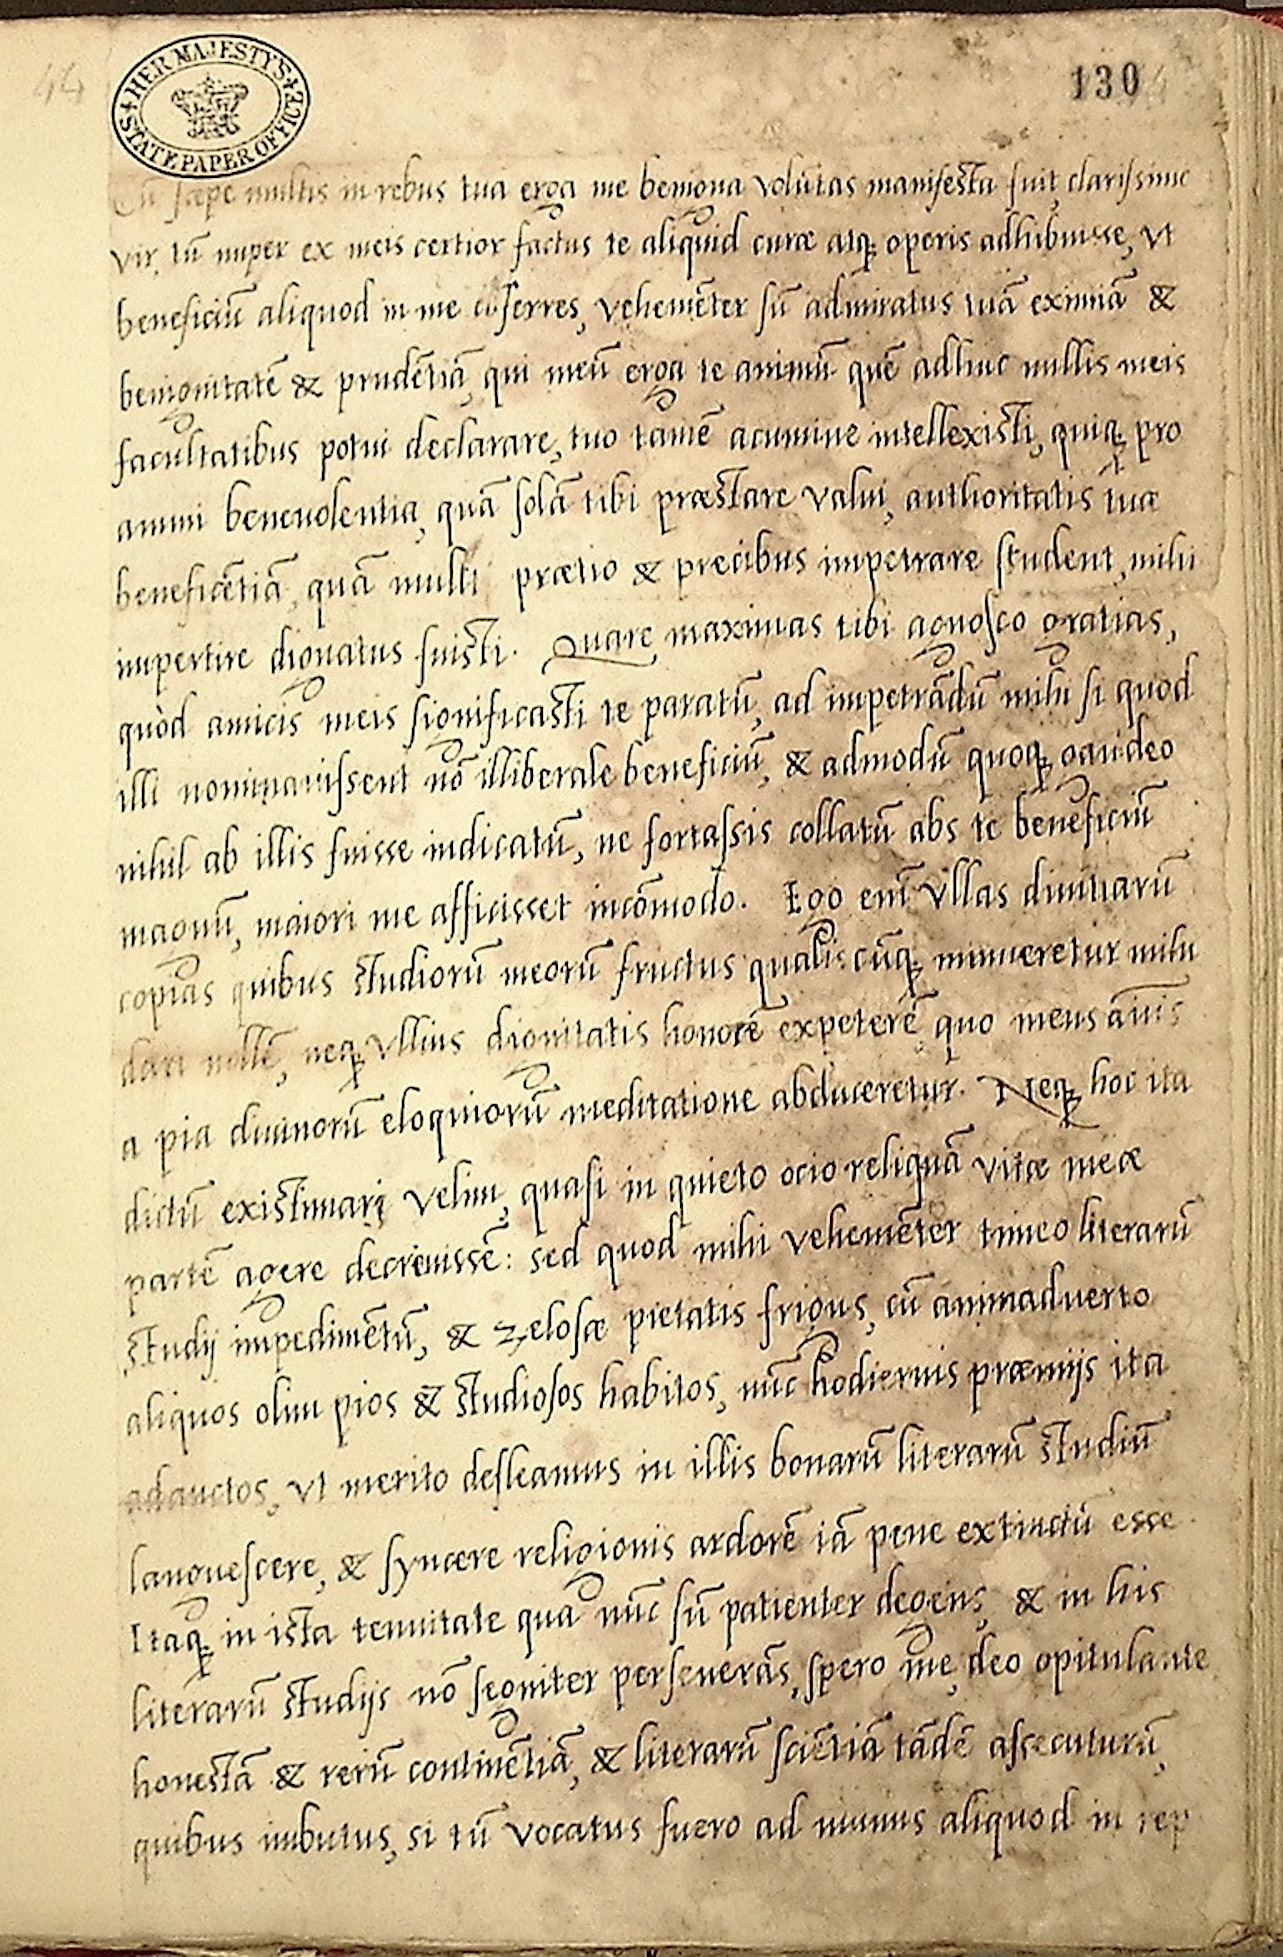 44
HER MAJESTY'S STATE PAPER OFFICE
130
Cū sæpe multis in rebus tua erga me benigna volūtas manifesta fuit, clarissime
vir, tū nuper ex meis certior factus te aliquid curæ atq; operis adhibuisse, vt
beneficiū aliquod in me cōferres, vehemēter sū admiratus tuā eximiā &
benignitatē & prudētiā, qui meū erga te animū quē adhuc nullis meis
facultatibus potui declarare, tuo tamē acumine intellexisti, quiq; pro
animi beneuolentia, quā solā tibi præstare valui, authoritatis tuæ
beneficētiā, quā multi prætio & precibus impetrare student, mihi
impertire dignatus fuisti. Quare maximas tibi agnosco gratias,
quòd amicis meis significasti te paratū, ad impetrādū mihi si quod
illi nominauissent nō illiberale beneficiū, & admodū quoq; gaudeo
nihil ab illis fuisse indicatū, ne fortassis collatū abs te beneficiū
magnū, maiori me affecisset incōmodo. Ego eni̅ vllas diuitiarū
copias quibus studiorū meorū fructus qualiscūq; minueretur mihi
dari nollē, neq; vllius dignitatis honorē expeterē quo meus āius
a pia diuinorū eloquiorū meditatione abduceretur. Neq; hoc ita
dictū existimari velim, quasi in quieto ocio reliquā vitæ meæ
partē agere decreuissē: sed quod mihi vehemēter timeo literarū
studij impedimētū, & zelosæ pietatis frigus, cū animaduerto
aliquos olim pios & studiosos habitos, nūc hodiernis præmijs ita
adauctos, vt merito defleamus in illis bonarū literarū studiū
languescere, & syncere religionis ardorē iā pene extinctū esse
Itaq; in ista tenuitate qua nūc sū patienter degens, & in his
literarū studijs nō segniter perseuerās, spero me, deo opitulante
honestā & rerū continētiā, & literarū sciētiā tādē assecuturū,
quibus imbutus, si tū vocatus fuero ad munus aliquod in rep